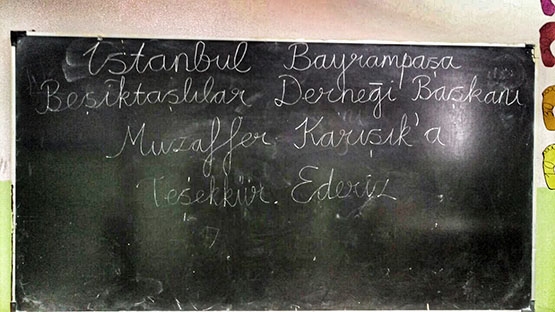 İstanbul Bayrampaşa
Beşiktaşlılar Derneği Başkanı
Muzaffer Karışık'a
Teşekkür Ederiz